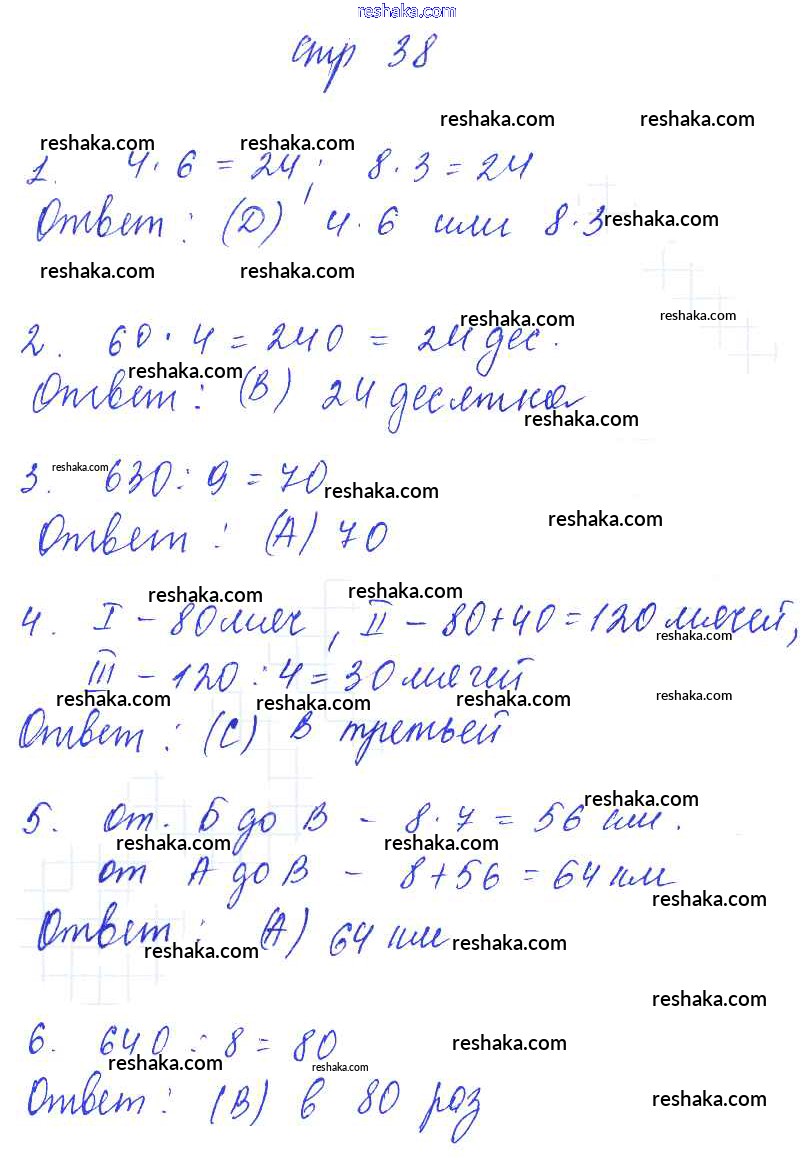 reshaka.com
стр 38
reshaka.com reshaka.com
reshaka.com reshaka.com
1. 4·6=24; 8·3=24
Ответ: (D) 4·6 или 8·3 reshaka.com
reshaka.com reshaka.com
reshaka.com reshaka.com
2. 60·4=240=24 дес.
reshaka.com
Ответ: (B) 24 десятка
reshaka.com
reshaka.com
3. 630:9=70
reshaka.com reshaka.com
Ответ: (A) 70
reshaka.com reshaka.com
4. I – 80 мяч, II – 80+40=120 мячей,
reshaka.com
III – 120:4=30 мячей
reshaka.com reshaka.com reshaka.com reshaka.com
Ответ: (C) В третьей
reshaka.com
5. от Б до В – 8·7=56 км.
reshaka.com reshaka.com
от А до В – 8+56=64 км
reshaka.com
Ответ: (A) 64 км
reshaka.com reshaka.com
reshaka.com
6. 640:8=80 reshaka.com
reshaka.com reshaka.com
Ответ: (B) в 80 раз reshaka.com